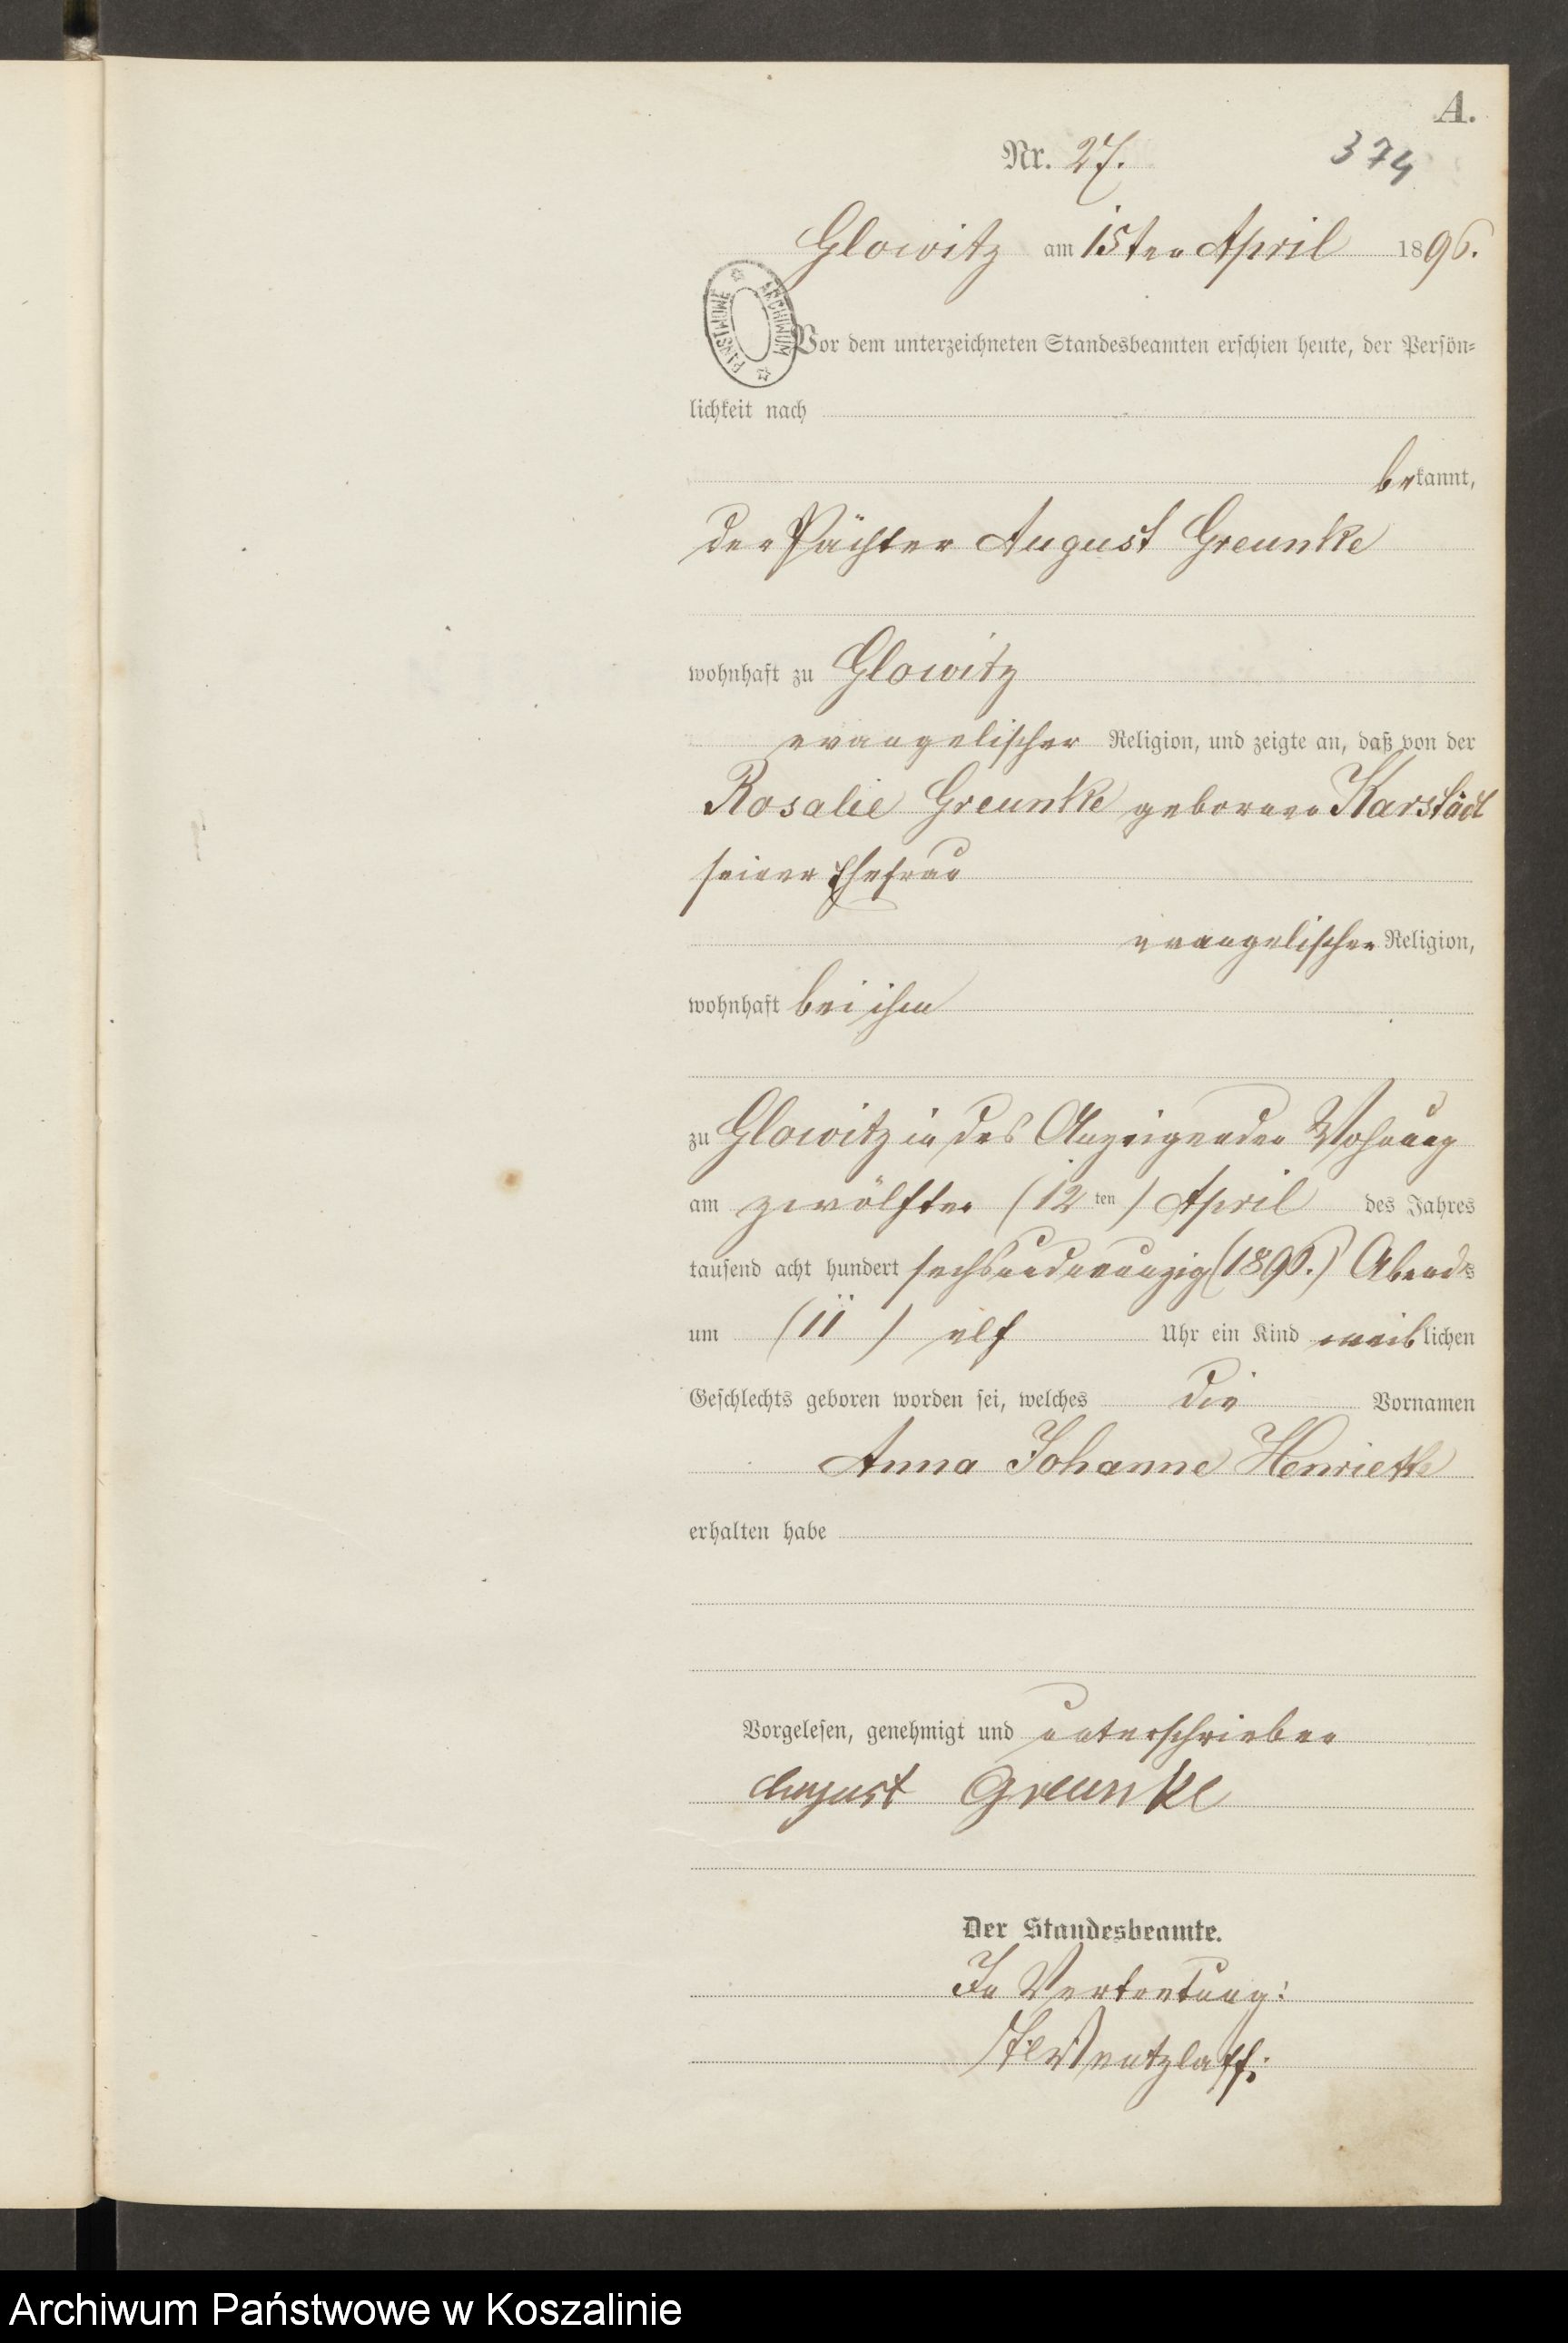 A.
Nr. 27.
374
Glowitz am 15ten April 1896.
ARCHIWUM PAŃSTWOWE
Vor dem unterzeichneten Standesbeamten erschien heute, der Persön-
lichkeit nach
bekannt,
der Pächter August Greunke
wohnhaft zu Glowitz
evangelischer Religion, und zeigte an, daß von der
Rosalie Greunke geborene Karstädt
seiner Ehefrau
evangelischer Religion,
wohnhaft bei ihm
zu Glowitz in des Anzeigenden Wohnung
am zwölften (12ten) April des Jahres
tausend acht hundert sechsundneunzig (1896.) Abends
um (11) elf Uhr ein Kind weiblichen
Geschlechts geboren worden sei, welches die Vornamen
Anna Johanne Henriette
erhalten habe
Vorgelesen, genehmigt und unterschrieben
August Greunke
Der Standesbeamte.
In Vertretung:
Wentzlaff.
Archiwum Państwowe w Koszalinie